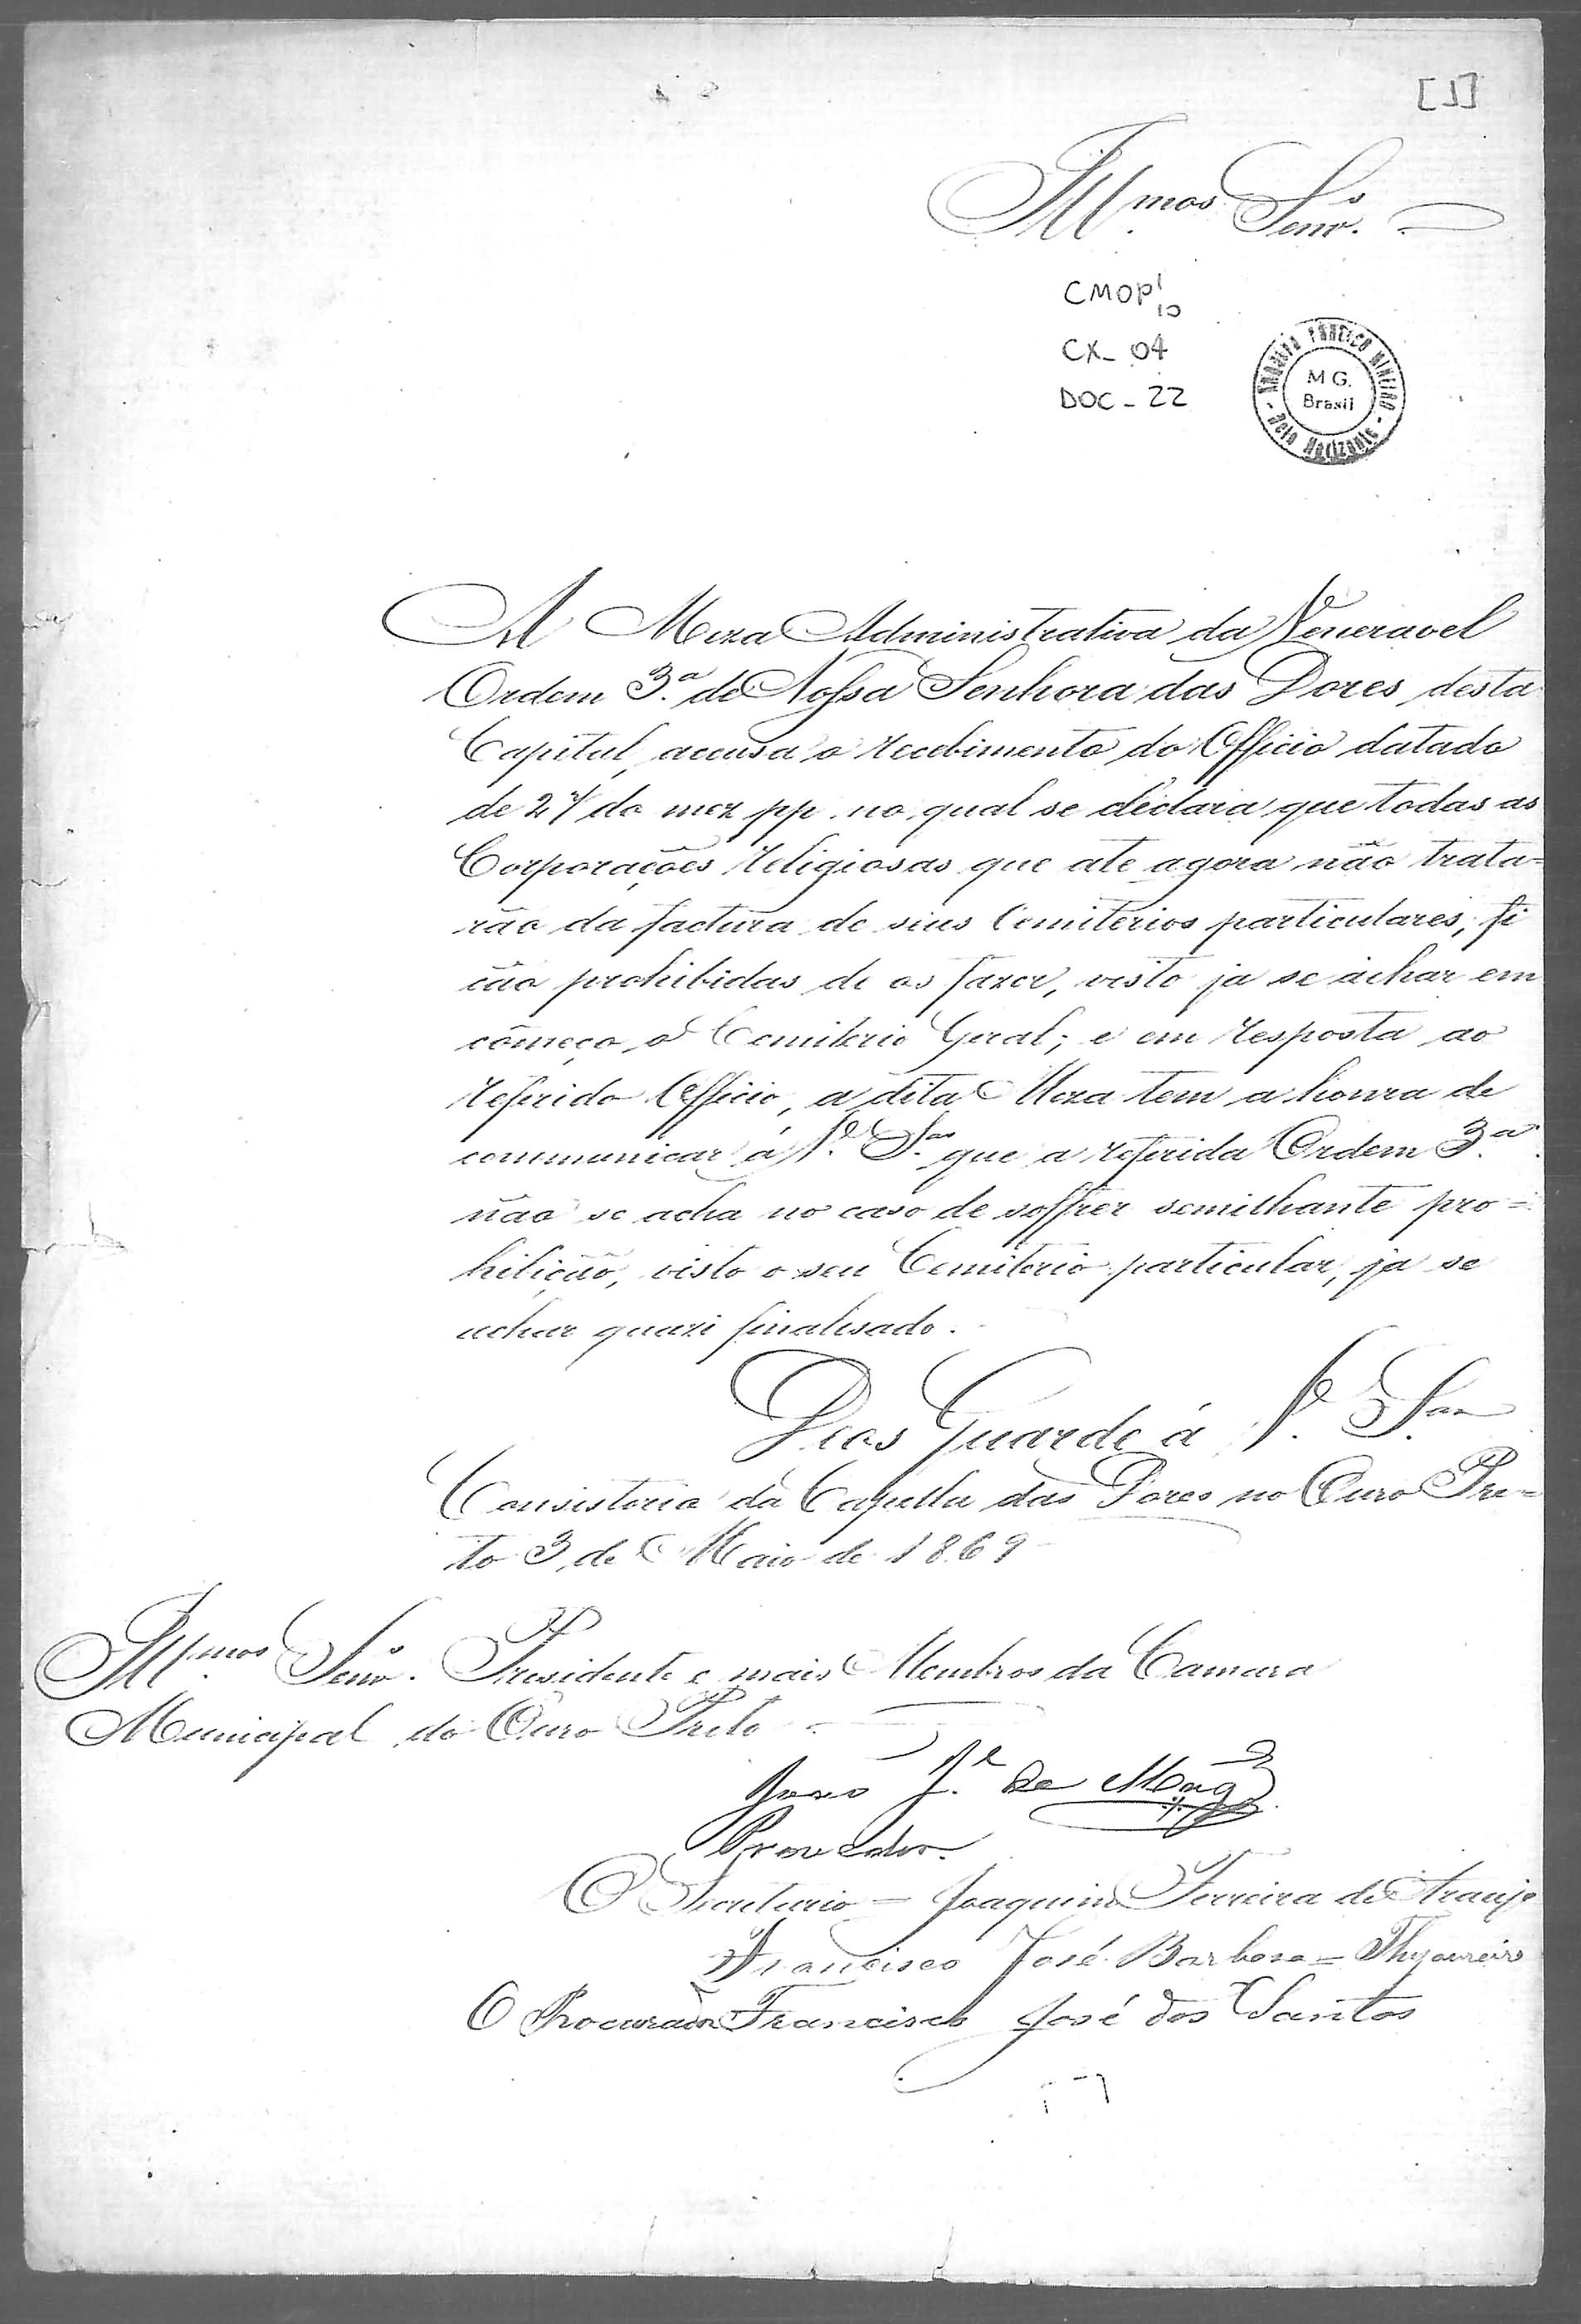 [1]
Illmos Senrs.
CMOP 1
10
CX_ 04
DOC_ 22
ARQUIVO PÚBLICO MINEIRO
MG.
Brasil
Belo Horizonte
A Meza Administrativa da Veneravel
Ordem 3.a de Nossa Senhora das Dores, desta
Capital, accusa o recebimento do Officio datado
de 27 do mez pp. no qual se declara que todas as
Corporações religiosas que ate agora não trata=
rão da factura de seus Cemiterios particulares, fi
cão prohibidas de os fazer, visto ja se achar em
começo o Cemiterio Geral; e em resposta ao
referido Officio, a dita Meza tem a honra de
communicar á V. S.as que a referida Ordem 3.a
não se acha no caso de soffrer semilhante pro=
hibição, visto o seu Cemiterio particular, ja se
achar quazi finalisado.
Deos Guarde á V. S.as
Consistorio da Capella das Dores no Ouro Pre=
to 3 de Maio de 1869
Illmos Senrs. Presidente e mais Membros da Camara
Municipal do Ouro Preto
João J.e de Mag.
Provedor.
O Secretario = Joaquim Ferreira de Araujo
Francisco José Barbosa = Thezoureiro
O Procurador Francisco José dos Santos